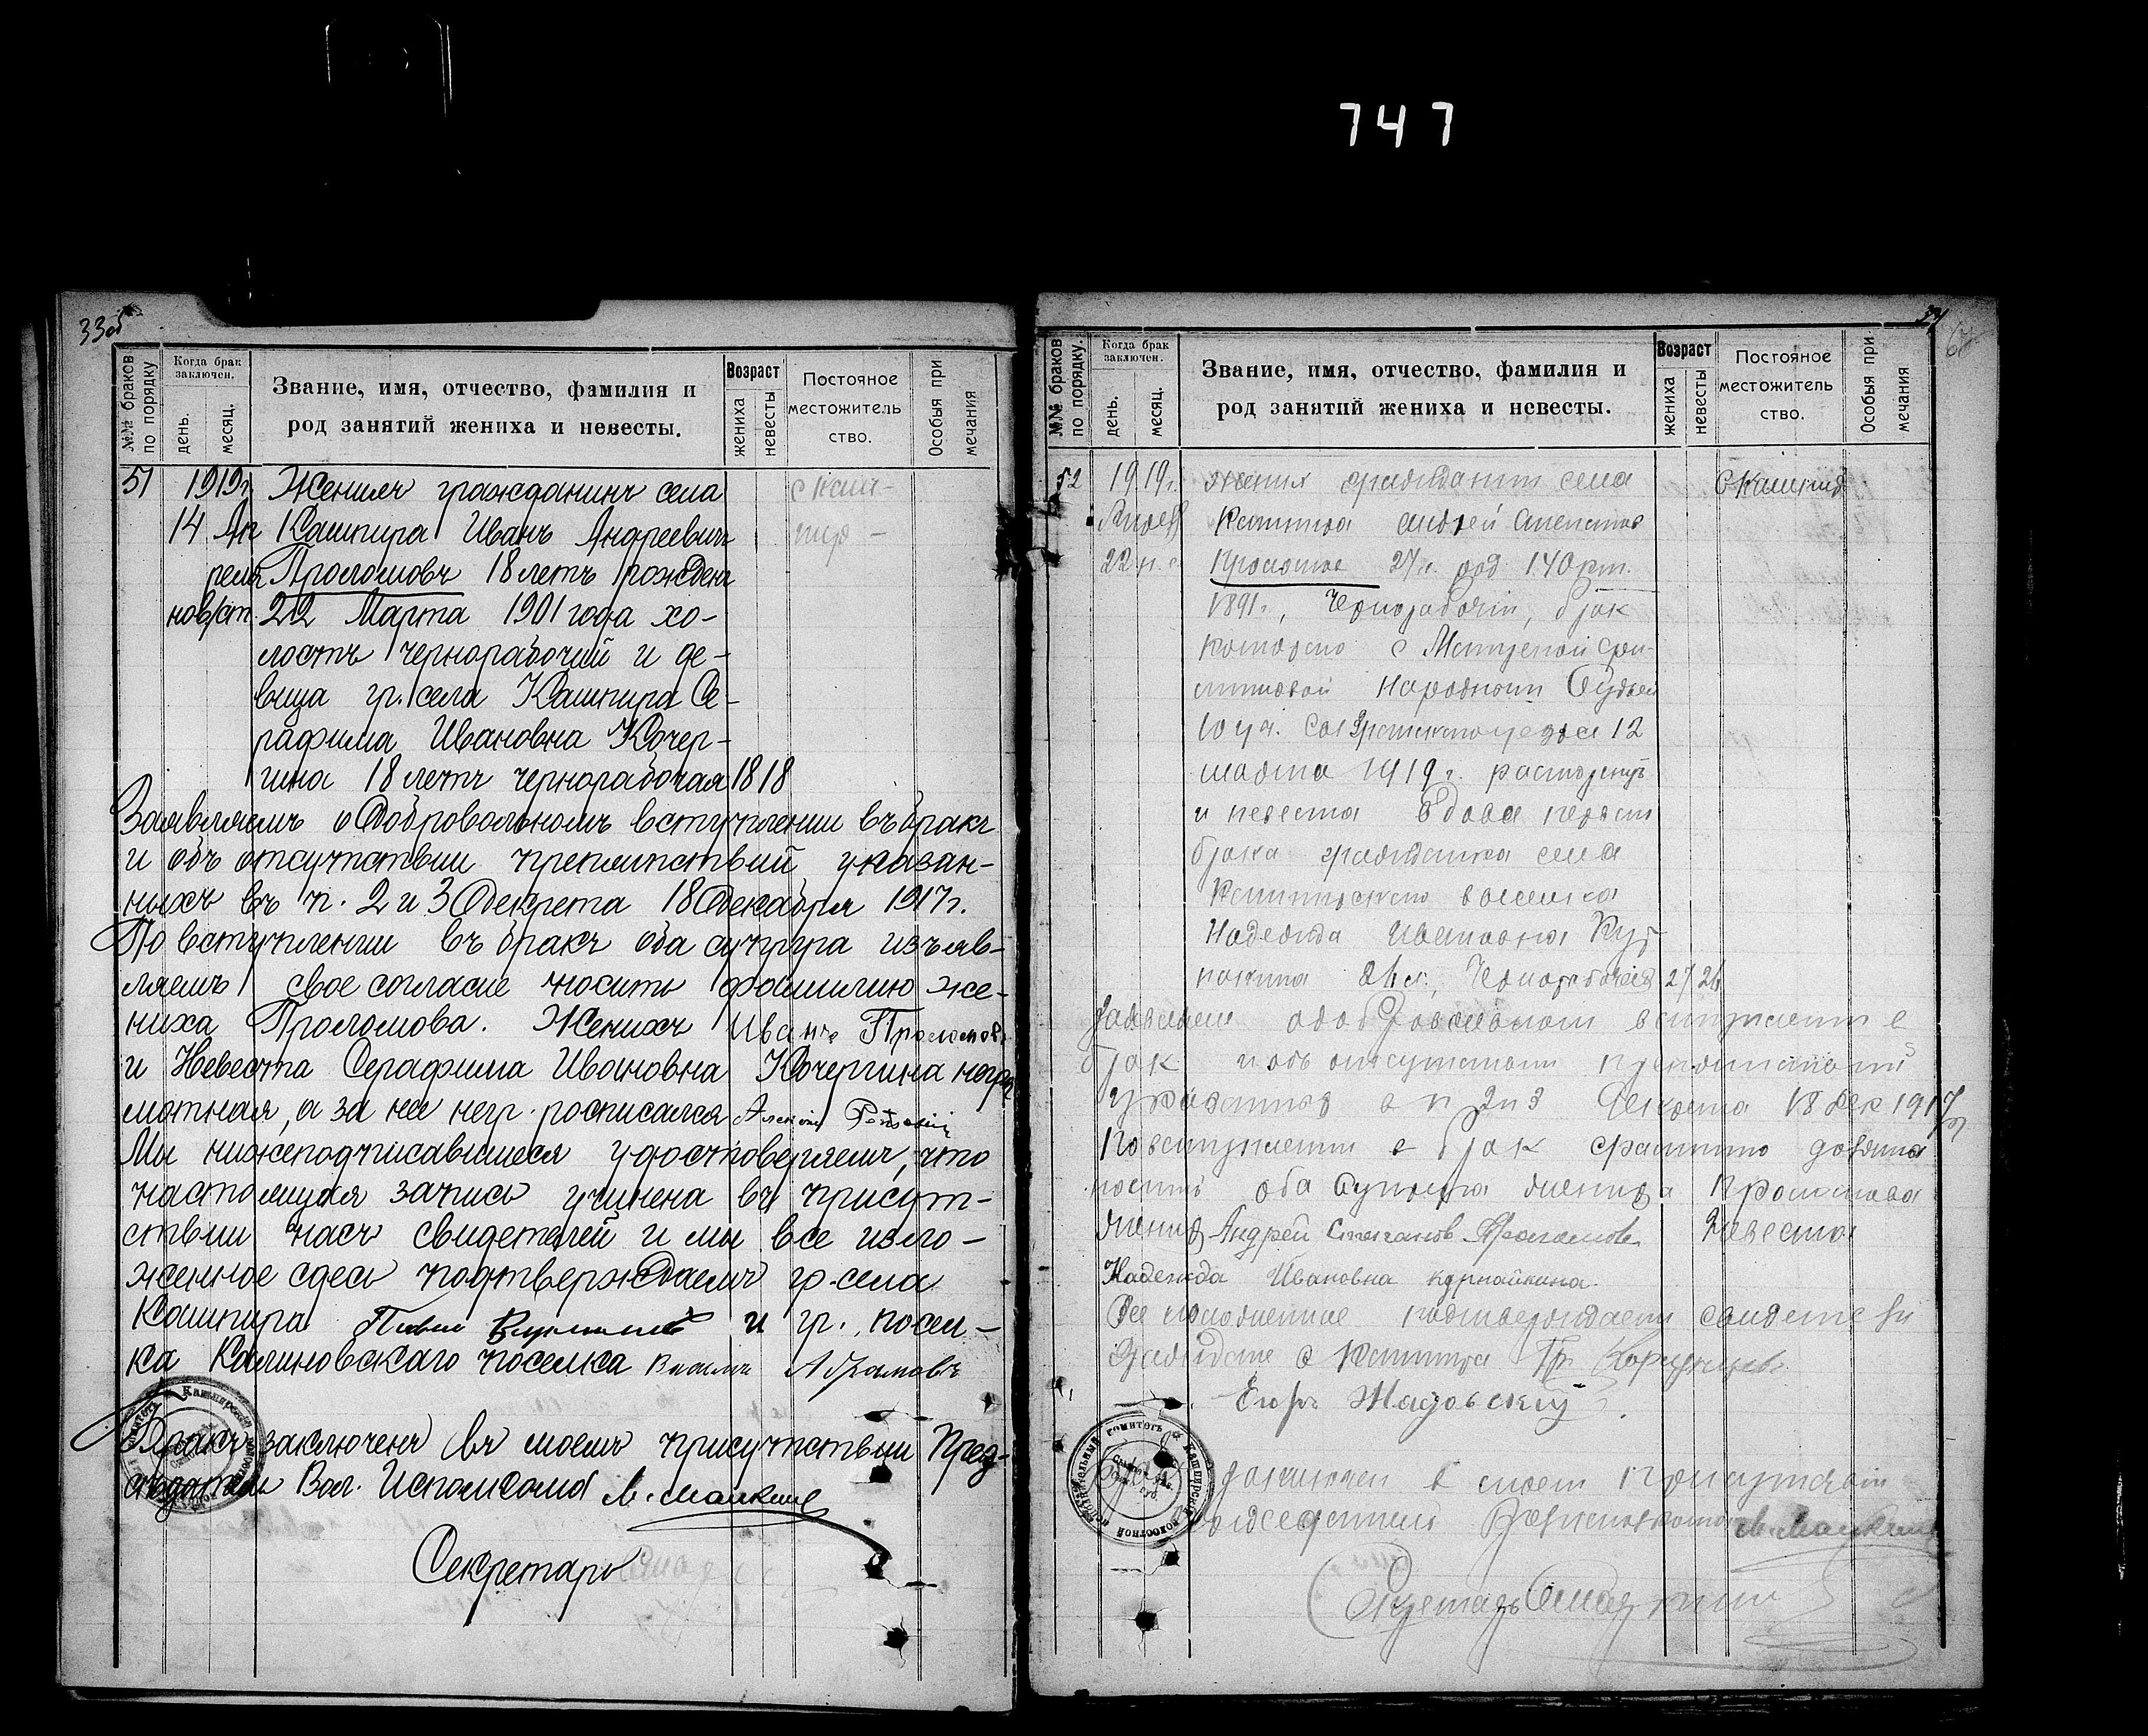 747
33об
№№ браков по порядку
Когда брак заключен.
день.
месяц.
Звание, имя, отчество, фамилия и
род занятий жениха и невесты.
Возраст
жениха
невесты
Постояное
местожитель
ство.
Особыя при
мечания
51 1919г. Женихъ гражданинъ села
14 Ап Кашпира Иванъ Андреевич
реля Проломовъ 18 летъ рожден
нов/ст. 22 Марта 1901 года хо-
лостъ чернорабочий и де-
вица гр. села Кашпира Се-
рафима Ивановна Кочер-
гина 18 летъ чернорабочая 18 18
Заявляемъ о добровольномъ вступлении въ бракъ
и объ отсутствии препятствий указан-
ныхъ въ п. 2 и 3 Декрета 18 Декабря 1917г.
По вступлении въ бракъ оба супруга изъяв-
ляемъ свое согласие носить фамилию же-
ниха Проломова. Женихъ Иванъ Проломовъ
и Невеста Серафима Ивановна Кочергина негра
мотная, а за нее негр. росписался
Мы нижеподписавшиеся удостоверяемъ, что
настоящая запись учинена въ присут-
ствии насъ свидетелей и мы все изло-
женное сдесь подтверждаемъ гр. села
Кашпира Павел и гр. посел-
ка Калиновскаго поселка Абрамовъ
Бракъ заключенъ въ моемъ присутствии Пред-
седатель Вол. Исполкома
Секретарь
34
№№ браков по порядку.
Когда брак заключен.
день.
месяц.
Звание, имя, отчество, фамилия и
род занятий жениха и невесты.
Возраст
жениха
невесты
Постояное
местожитель
ство.
Особыя при
мечания
52 1919г. жених гражданин села С Кашпир
Апреля Кашпира Андрей Степанов
22 н. с Проломов 27 л. род 14 Окт.
1891г., Чернорабочий, брак
которого с
Народным Судьей
10 уч. Сызранского уезда 12
марта 1919г. расторгнут
и невеста вдова первого
брака гражданка села
Кашпирского выселка
Надежда Ивановна Кур
найкина 26 л., Чернорабочая 27 26
Заявляем о добровольном вступлении в
брак и об отсутствии препятствий
указанных в п 2 и 3 Декрета 18 Дек 1917г
По вступлении в брак фамилию должны
носить оба супруга жениха Проломова
Жених Андрей Степанов Проломов Невеста
Надежда Ивановна Курнайкина.
Все изложенное подтверждаем свидетели
Граждане с Кашпира
Егоръ Жадовский
заключен в моем присутствии
Председатель Волисполкома
Секретарь